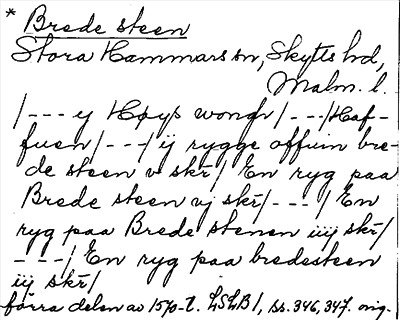 * Brede steen
Stora Hammars sn, Skytts hd,
Malm. l.
/--- ij Høys wongh /---/ Haf-
fuen /---/ ij rygge offuin bre-
de steen v skr̃/ En ryg paa
Brede steen vj skr̃/---/ En
ryg paa Brede stenen iiij skr̃/
---/ En ryg paa bredesteen
iij skr̃/
förra delen av 1570-t. LSLB 1, ss. 346, 347. orig.